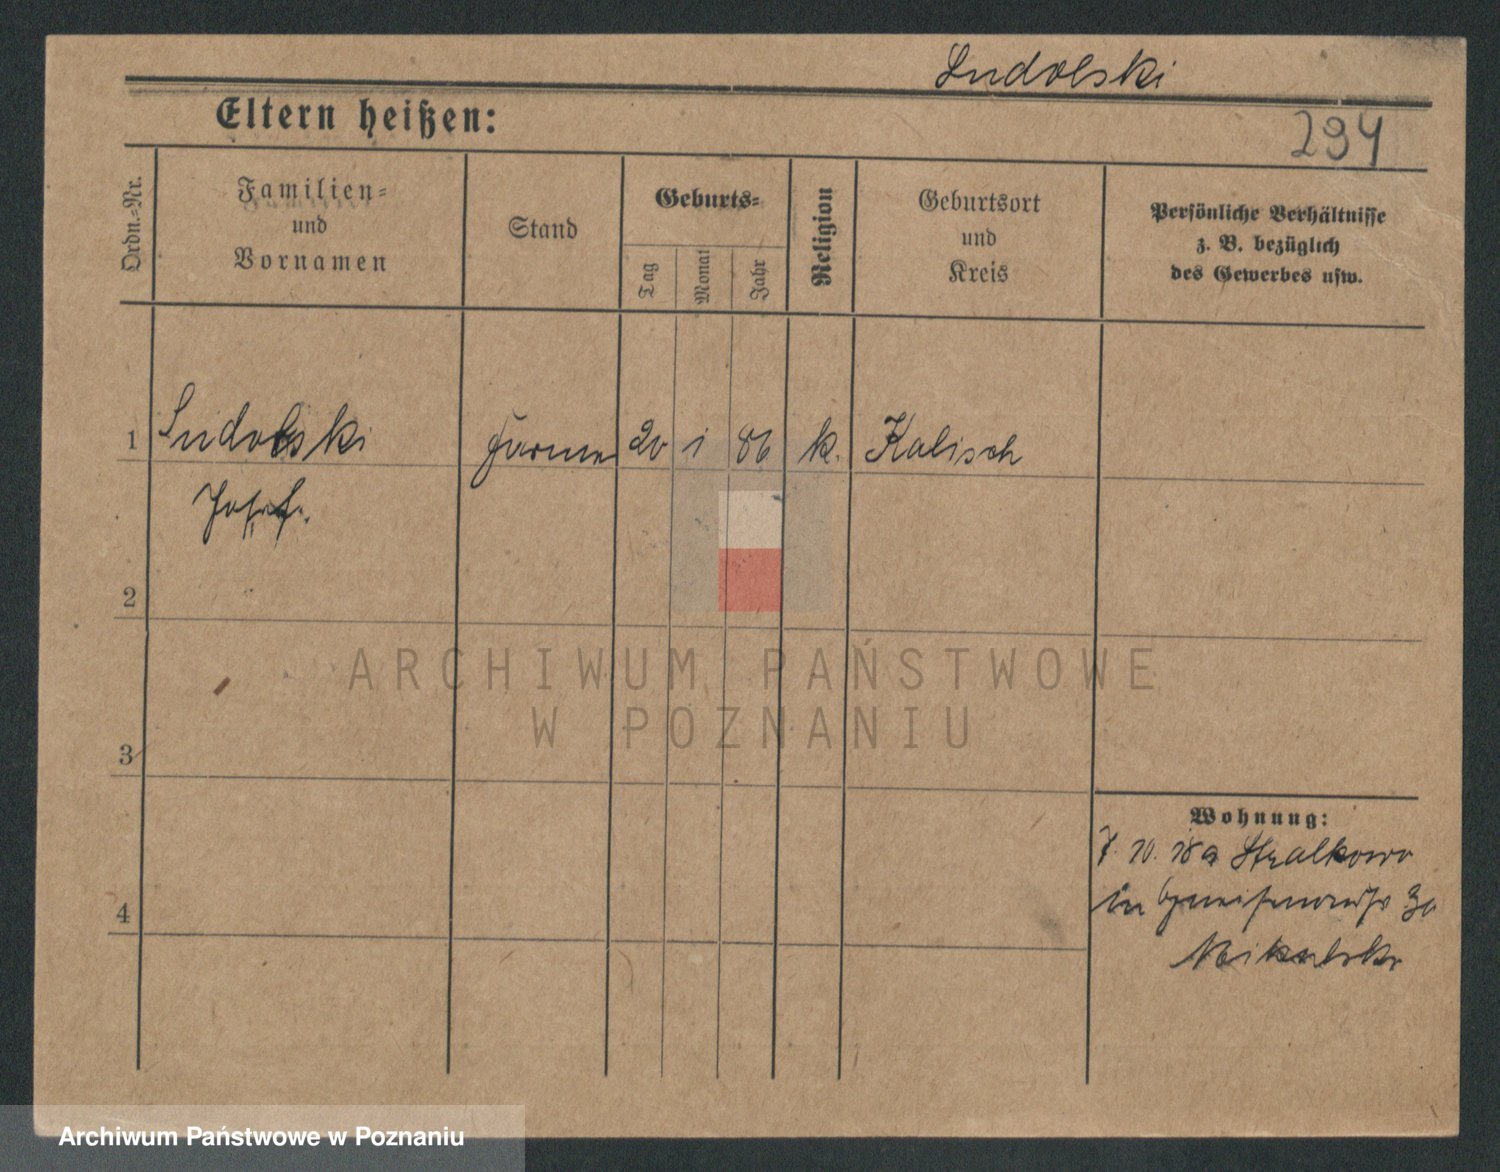 Sudolski
Eltern heißen:
294
Ordn.=Nr.
Familien=
und
Vornamen
Stand
Geburts=
Tag
Monat
Jahr
Religion
Geburtsort
und
Kreis
Persönliche Verhältnisse
z. B. bezüglich
des Gewerbes usw.
1
Sudolski
20
1
86
k.
Kalisch
Josef.
2
ARCHIWUM PAŃSTWOWE
W POZNANIU
3
Wohnung:
7. 10. 18 a Stralkowo
in Gneisenaustr 30
4
Archiwum Państwowe w Poznaniu